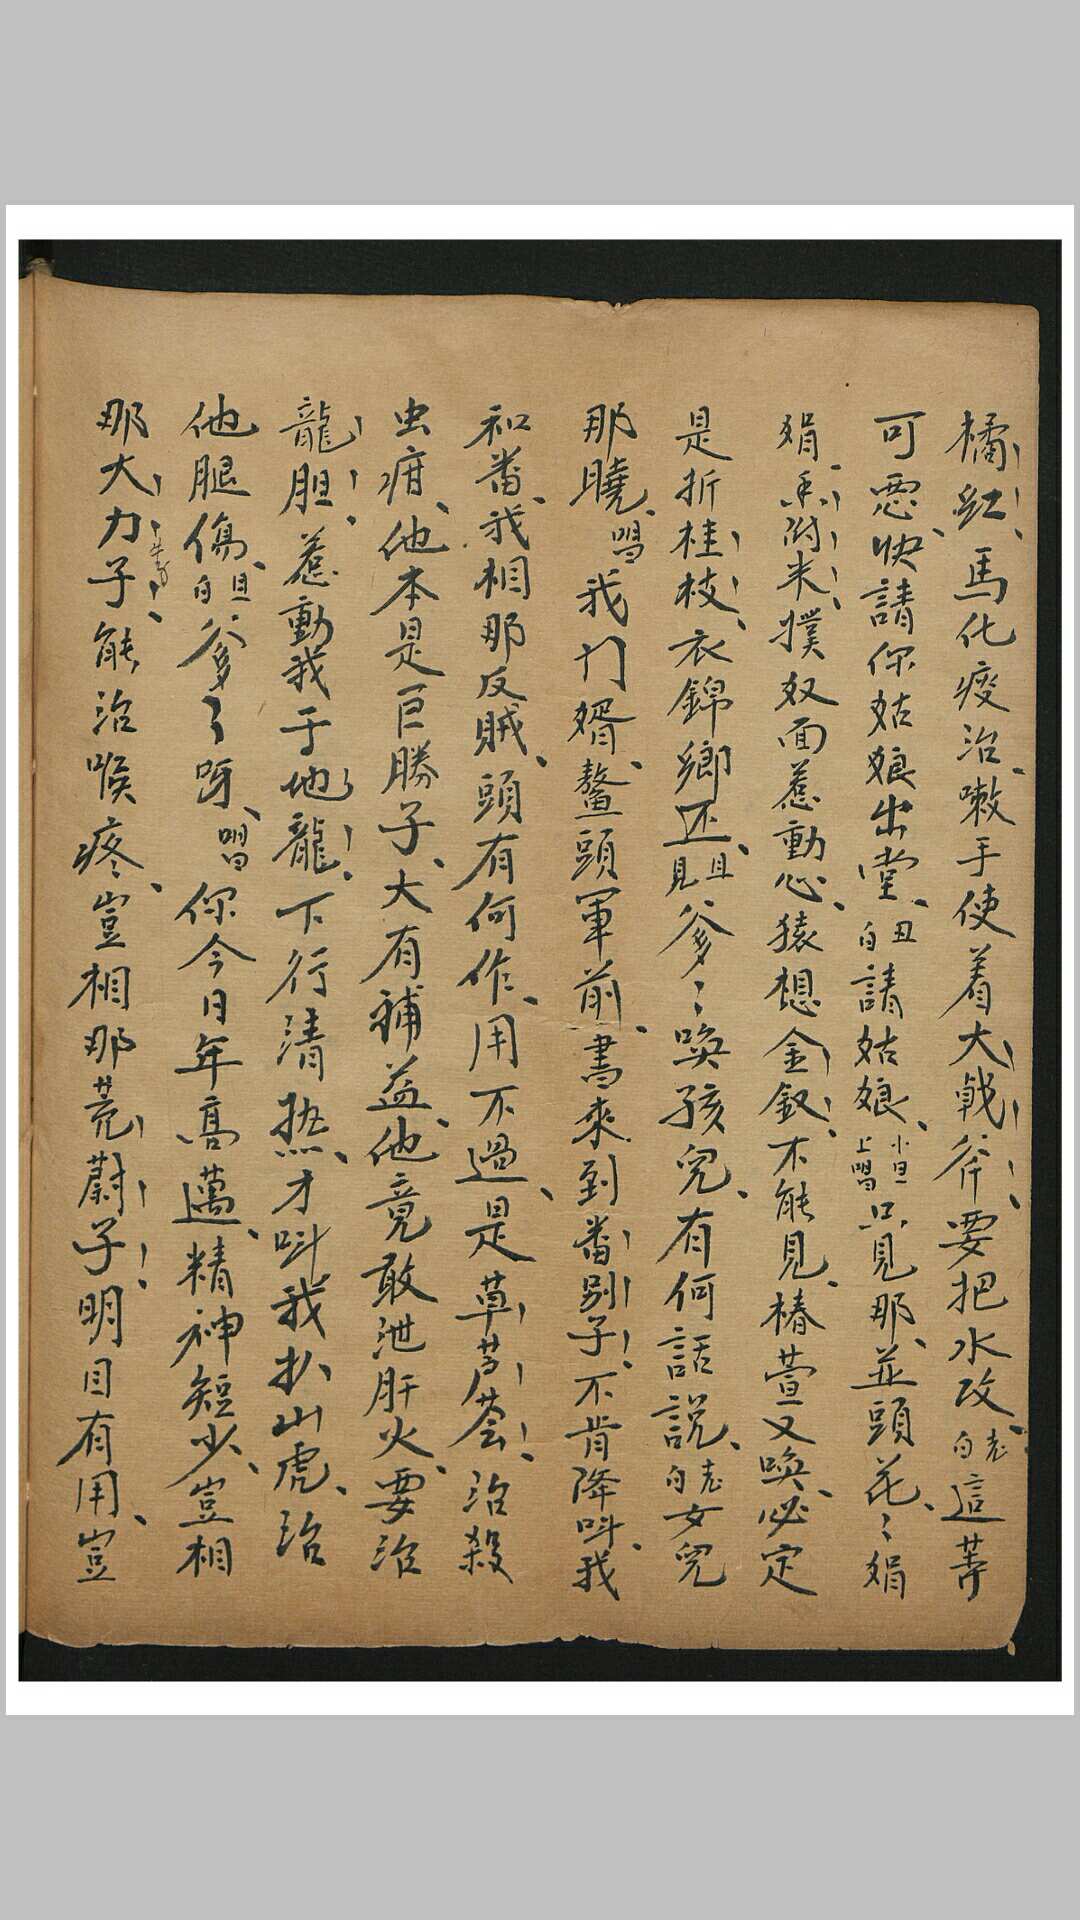 橘紅馬化痰治嗽手使着大戟斧要把水攻老白這等
可惡快請你姑娘出堂丑白請姑娘小旦上唱只見那並頭花〻娟
娟香附米撲奴面惹動心猿想金釵不能見椿萱又喚必定
是折桂枝衣錦鄉还旦見爹〻喚孩兒有何話說老白女兒
那曉唱我门婿鰲頭軍前書來到番别子不肯降呌我
和番我相那反賊頭有何作用不過是草芦薈治殺
虫疳他本是巨勝子大有補益他竟敢泄肝火要治
龍胆惹動我于他龍下行清热才呌我扒山虎治
他腿傷旦白爹〻呀唱你今日年高邁精神短少豈相
那大力子牛旁能治喉疼豈相那茺蔚子明目有用豈